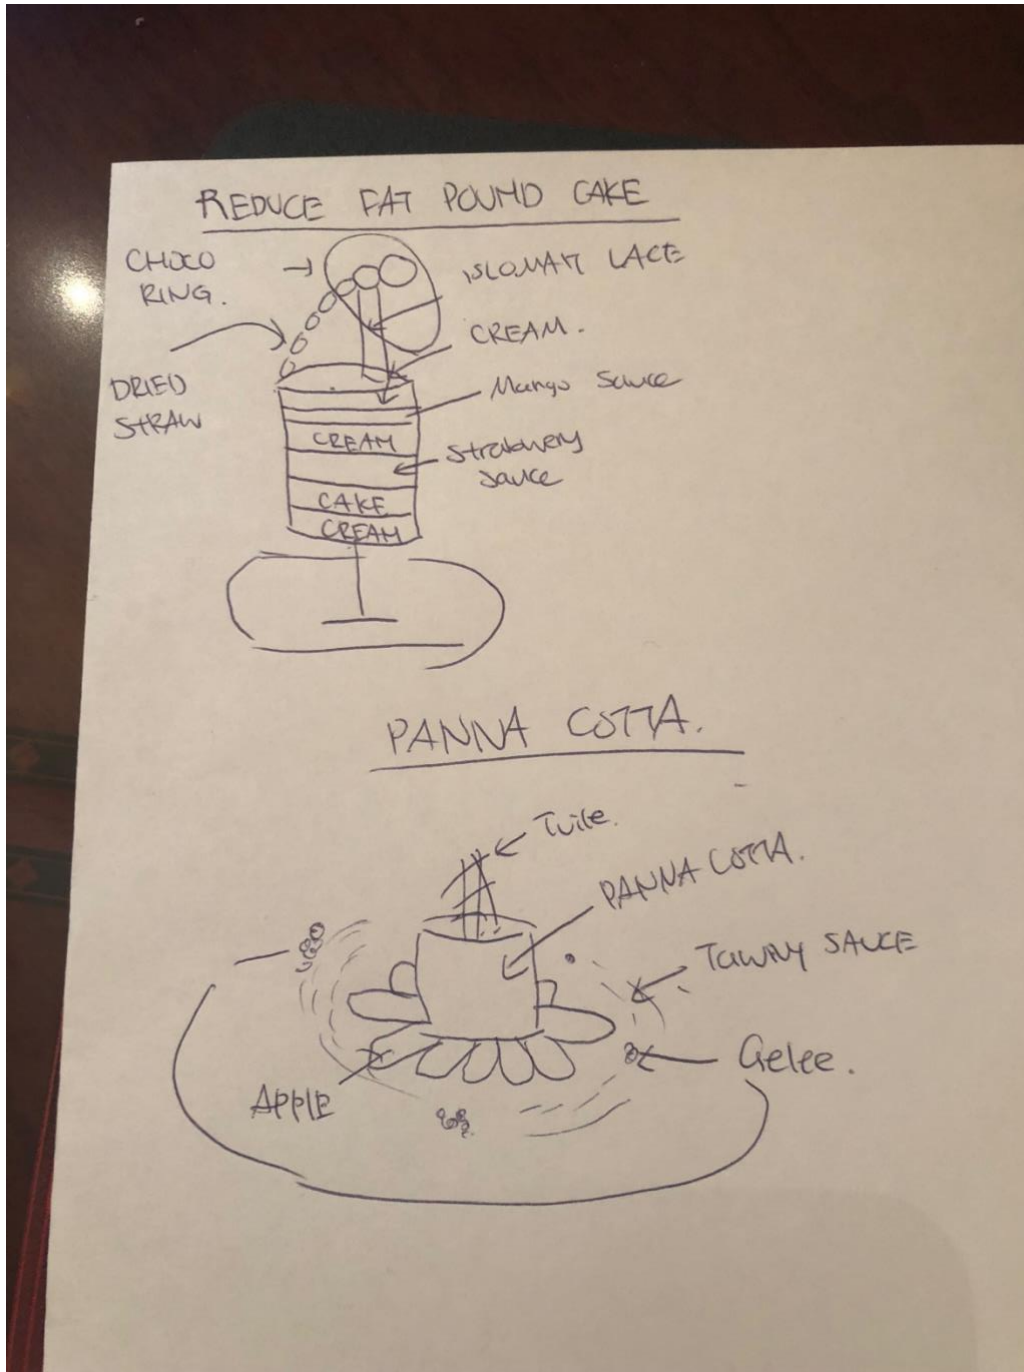 REDUCE FAT POUND CAKE
CHOCO
RING.
ISLOMATT LACE
CREAM.
DRIED
STRAW
Mango Sauce
CREAM
Strabwery
Sauce
CAKE
CREAM
PANNA COTTA.
Tuile.
PANNA COTTA.
TAWNY SAUCE
Gelee.
APPLE